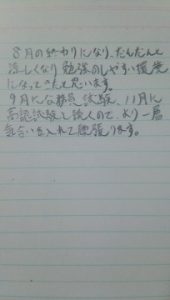 8月の終わりになり、だんだんと
涼しくなり勉強のしやすい環境
になってきたと思います。
9月に公務員試験、11月に
高認試験と続くので、より一層
気合いを入れて頑張ります。